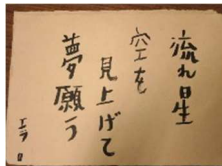 流れ星
空を
見上げて
夢願う
エラ